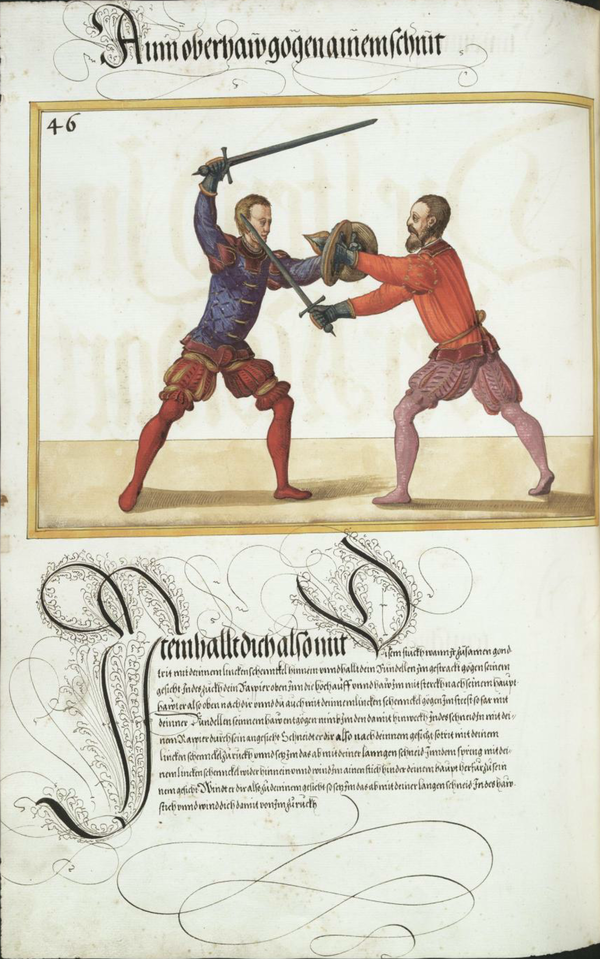 Ainn oberhaw gogen ainem schnit
46
Item hallt dich also mit Disem stuckh wann Ir zusamen gond
trit mit deinnem lincken schennckel hinnein vnnd hallt dein Rundellen Im gestrackt gogen seinem
gesicht Indes zuckh dein Rapier oben Inn die hoch auff vnnd haw Im mit sterckh nach seinem haupt
hawt er also oben nach dir vnnd du auch mit deinnem lincken schennckel gogen Im steest so far mit
deinner Rundellen seinnem haw entgogen nimb Im den damit hinweckh Indes schneid Im mit dei-
nem Rapier durch sein angesicht Schneidt er dir also nach deinnem gesicht so trit mit deinem
lincken schennckel zuruckh vnnd setz Im das ab mit deiner lanngen schneid Inn dem spring mit dei-
nem lincken schennckel wider hinnein vnnd wind Im ainen stich hinder deinem haupt herfur zu sein
nem gesicht Windt er dir also zu deinnem gesicht so setz Im das ab mit deiner langen schneid Indes haw
stich vnnd wind dich damit von Im zuruckh